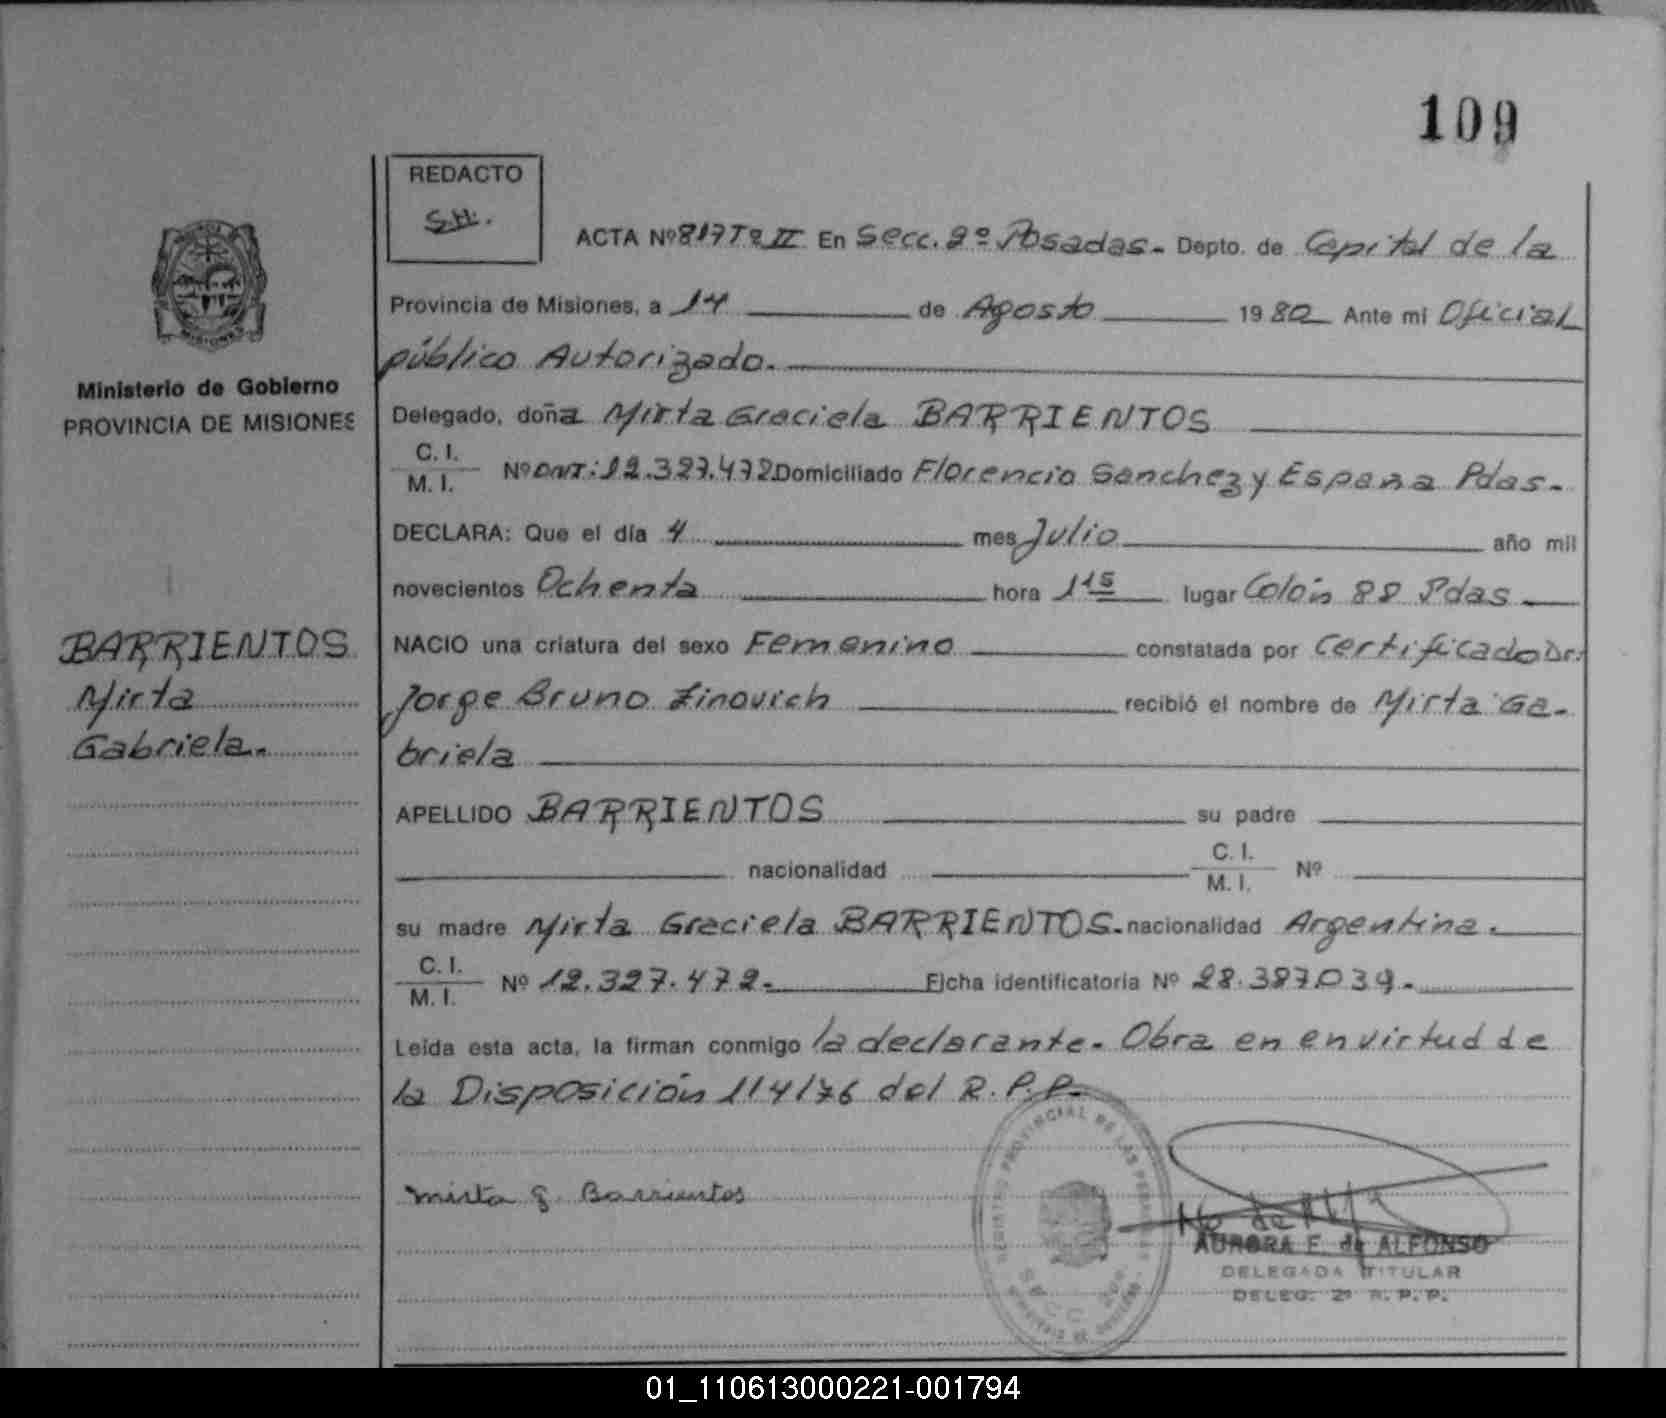 109
REDACTO
S.H.
ACTA Nº 817 Tº II En Secc. 2º Posadas- Depto. de Capital de la
Provincia de Misiones, a 14 de Agosto 1980 Ante mi Oficial
público Autorizado.
Ministerio de Gobierno
PROVINCIA DE MISIONES
Delegado, doña Mirta Graciela BARRIENTOS
C. I.
M. I. Nº DNI: 12.327.472 Domiciliado Florencio Sanchez y España Pdas.
DECLARA: Que el día 4 mes Julio año mil
novecientos Ochenta hora 1 15 lugar Colón 88 Pdas
BARRIENTOS
Mirta
Gabriela.
NACIO una criatura del sexo Femenino constatada por Certificado Dr.
Jorge Bruno Zinovich recibió el nombre de Mirta Ga-
briela
APELLIDO BARRIENTOS su padre
nacionalidad C. I.
M. I. Nº
su madre Mirta Graciela BARRIENTOS. nacionalidad Argentina.
C. I.
M. I. Nº 12.327.472. Ficha identificatoria Nº 28.387.039.
Leída esta acta, la firman conmigo la declarante. Obra en en virtud de
la Disposición 114/76 del R.P.P.
Mirta G. Barrientos
REGISTRO PROVINCIAL DE LAS PERSONAS
SECC. 2da.
AURORA F. de ALFONSO
DELEGADA TITULAR
DELEG. 2ª R.P.P.
01_110613000221-001794